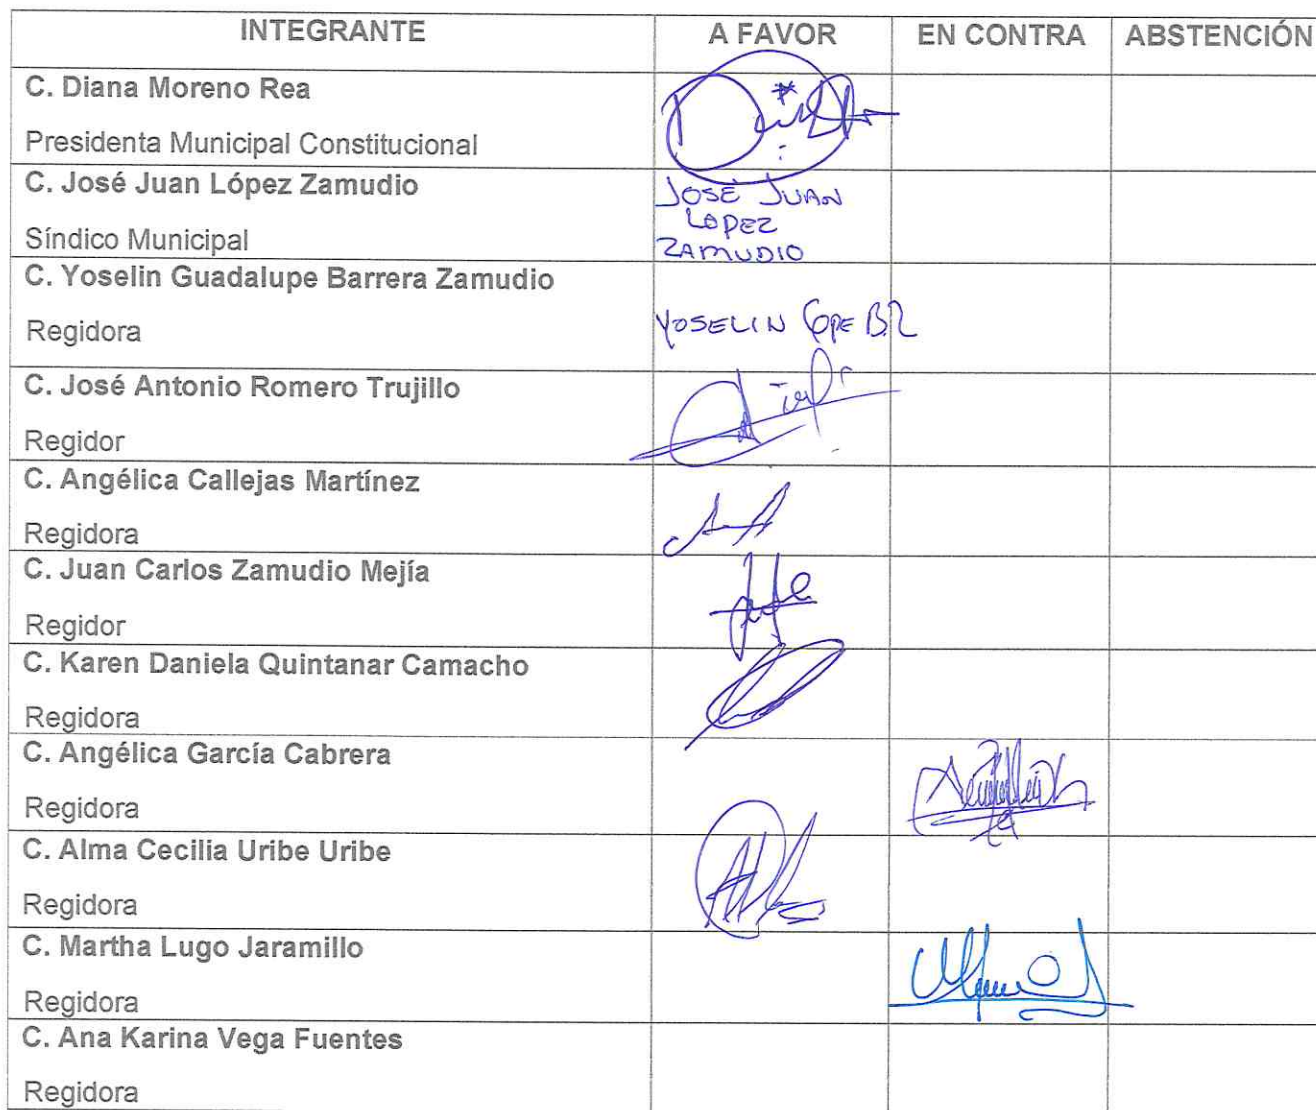 INTEGRANTE A FAVOR EN CONTRA ABSTENCIÓN
C. Diana Moreno Rea
Presidenta Municipal Constitucional
C. José Juan López Zamudio
Síndico Municipal
JOSÉ JUAN
LOPEZ
ZAMUDIO
C. Yoselin Guadalupe Barrera Zamudio
Regidora
YOSELIN GPE BZ
C. José Antonio Romero Trujillo
Regidor
C. Angélica Callejas Martínez
Regidora
C. Juan Carlos Zamudio Mejía
Regidor
C. Karen Daniela Quintanar Camacho
Regidora
C. Angélica García Cabrera
Regidora
C. Alma Cecilia Uribe Uribe
Regidora
C. Martha Lugo Jaramillo
Regidora
C. Ana Karina Vega Fuentes
Regidora